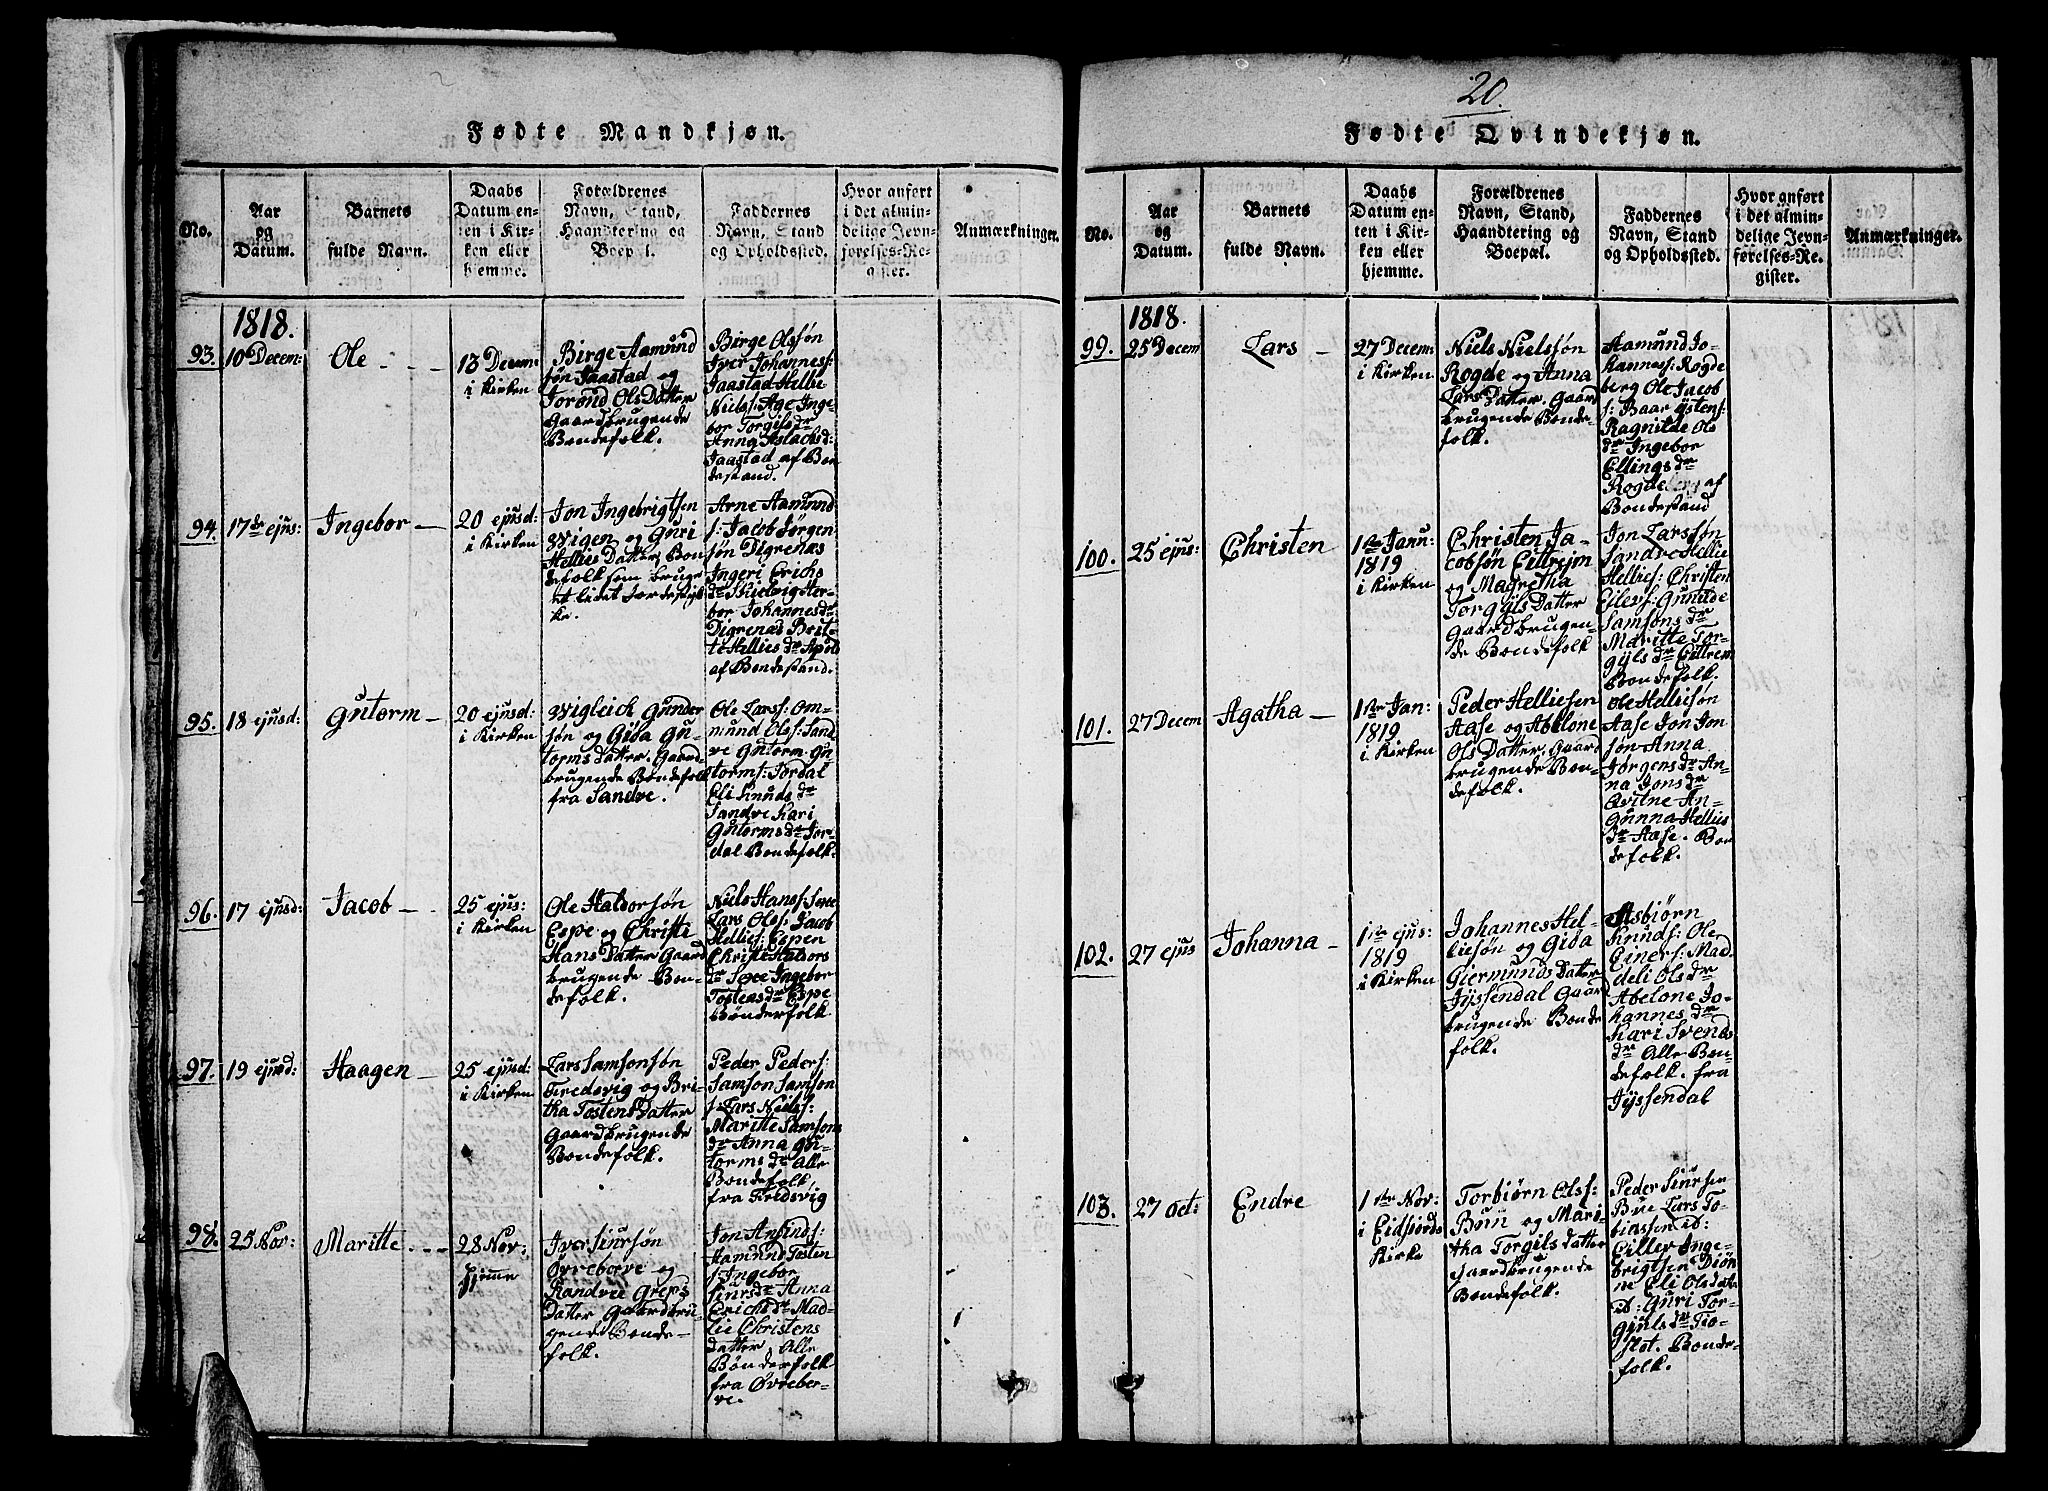 20.
Fødte Mandkjøn.
No.
Aar
og
Datum.
Barnets
fulde Navn.
Daabs
Datum en-
ten i Kir-
ken eller
hjemme.
Forældrenes
Navn, Stand,
Haandtering og
Boepæl.
Faddernes
Navn, Stand
og Opholdssted.
Hvor anført
i det almin-
delige Jevn-
førelses-Re-
gister.
Anmærkninger.
1818.
93.
10 Decem:
Ole
13 Decem:
i Kirken
Birge Aamund
søn Jaastad og
Torond Ols Datter
Gaardbrugende
Bondefolk.
Birge Olssøn
Iver Johanness:
Jaastad Hellie
Niels: Age Inge-
bor Torgilsdr
Anna Aslachsd:
Jaastad af Bon
destand.
94.
17de ejus:
Ingebor
20 ejusd:
i Kirken
Jon Ingebrigtsen
Wigen og Guri
Hellies Datter, Bon
defolk som bruge
et lidet Jordestyk
ke.
Arne Aamund
s: Jacob Jørgen
søn Digrenæs
Ingeri Erichs
dr Hedvig Her-
bor Johannesdr
Digrenæs Brit-
te Hellies dr
af Bondestand.
95.
18 ejusd:
Gutorm
20 ejusd:
i Kirken
Wigleich Gunder
søn og Gida Gu-
torms Datter. Gaard
brugende Bondefolk
fra Sandve.
Ole Larss: Om-
mund Olss: Sand
ve Gutorm Gu-
torms: Jordal
Eli Knuds dr
Sandve Kari
Gutorms dr Jor-
dal Bondefolk.
96.
17 ejusd:
Jacob
25 ejus:
i Kirken
Ole Haldorsøn
Espe og Christi
Hans Datter Gaard
brugende Bon-
defolk.
Niels Hanss: Sexe
Lars Olss: Jacob
Hellies: Espen
Christi Haldors
dr Sexe Ingebor
Tostensdr Espe
Bønderfolk
97.
19 ejusd:
Haagen
25 ejusd:
i Kirken
Lars Samsonsøn
Fredsvig og Bri-
tha Tostens Datter
Gaardbrugende
Bondefolk.
Peder Peders:
Samson Samson
s: Lars Niels:
Maritte Samsons
dr Anna Gu-
torms dr Alle
Bondefolk,
fra Fredsvig
98.
25 Nov:
Maritte
28 Nov:
hjemme
Iver Siursøn
Øvreberve og
Randvei Greps
Datter Gaardbru-
gende Bonde-
folk.
Jon Amunds:
Aamund Tosten
s: Ingebor
Siursdr Anna
Erichsdr Mad-
lie Christens
datter, Alle
Bønderfolk
fra Øvreber-
ve.
Fødte Qvindekjøn.
No.
Aar
og
Datum.
Barnets
fulde Navn.
Daabs
Datum en-
ten i Kir-
ken eller
hjemme.
Forældrenes
Navn, Stand,
Haandtering og
Boepæl.
Faddernes
Navn, Stand
og Opholdssted.
Hvor anført
i det almin-
delige Jevn-
førelses-Re-
gister.
Anmærkninger.
1818.
99.
25 Decem
Lars
27 Decem:
i Kirken
Niels Nielssøn
Rogde og Anna
Lars Datter. Gaard
brugende Bonde-
folk.
Aamund Jo-
hanness: Rogde
berg Ole Jacob
s: Baar Østens:
Ragnilde Ols
dr Ingebor
Ellings dr
Rogdeberg af
Bondestand
100.
25 ejus:
Christen
1ste Janu:
1819
i Kirken
Christen Ja-
cobsøn Eittrejm
og Magretha
Torgils Datter
Gaardbrugen-
de Bondefolk
Jon Larssøn
Sandve Hellie
Hellies: Christen
Eilevs: Gunilde
Samsons dr
Maritte Tor-
gils dr Eittrem
Bondefolk.
101.
27 Decem
Agatha
1ste Jan:
1819
i Kirken
Peder Helliesen
Aase og Abelone
Ols Datter. Gaard
brugende Bon-
defolk.
Ole Helliesøn
Aase Jon Jon
søn Anna
Jørgensdr An-
na Jons dr
Qvitne An-
Gunna Hellies
dr Aase. Bon
defolk.
102.
27 ejus
Johanna
1ste ejus:
1819
i Kirken
Johannes Hel-
liesøn og Gida
Giermunds Datter
Jyssendal Gaard
brugende Bonde
folk.
Asbjørn
Knuds: Ole
Einers: Mad
deli Ols dr
Abelone Jo-
hannes dr
Kari Svends
dr Alle Bon-
defolk. fra
Jyssendal
103.
27 Oct:
Endre
1ste Nov:
i Eidfjords
Kirke
Torbiørn Olss:
Bun og Mari-
tha Torgils datter
Gaardbrugende
Bondefolk.
Peder Siursen
Bue Lars To-
biassen ib:
Eiller Inge-
brigtsen Diøn
ne Eli Ols datr
ib: Guri Tor-
giulsdr Tio-
flot. Bonde-
folk.